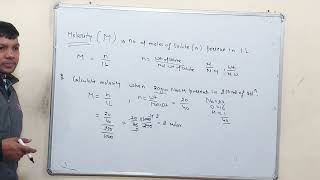 Molarity (M) is no. of moles of Solute (n) present in 1 L
M = n/1L , n = wt of solute / Mol. wt of Solute
Calculate molarity when 20gm NaOH present in 250 ml of soln
M = n/1L , n = wt/Mol.wt = 20/40
Na = 23
O = 16
H = 1
40
= 20/40 / 250/1000 = 20/40 × 1000/250 = 2 molar